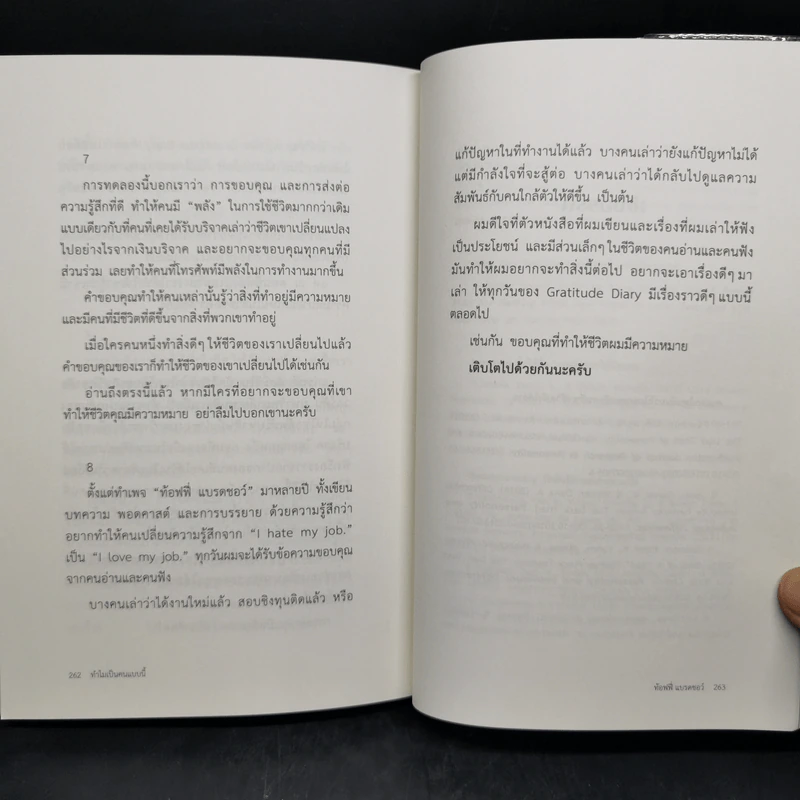 7
การทดลองนี้บอกเราว่า การขอบคุณ และการส่งต่อ
ความรู้สึกที่ดี ทำให้คนมี “พลัง” ในการใช้ชีวิตมากกว่าเดิม
แบบเดียวกับที่คนที่เคยได้รับบริจาคเล่าว่าชีวิตเขาเปลี่ยนแปลง
ไปอย่างไรจากเงินบริจาค และอยากจะขอบคุณทุกคนที่มี
ส่วนร่วม เลยทำให้คนที่โทรศัพท์มีพลังในการทำงานมากขึ้น
คำขอบคุณทำให้คนเหล่านั้นรู้ว่าสิ่งที่ทำอยู่มีความหมาย
และมีคนที่มีชีวิตที่ดีขึ้นจากสิ่งที่พวกเขาทำอยู่
เมื่อใครคนหนึ่งทำสิ่งดีๆ ให้ชีวิตของเราเปลี่ยนไปแล้ว
คำขอบคุณของเราก็ทำให้ชีวิตของเขาเปลี่ยนไปได้เช่นกัน
อ่านถึงตรงนี้แล้ว หากมีใครที่อยากจะขอบคุณที่เขา
ทำให้ชีวิตคุณมีความหมาย อย่าลืมไปบอกเขานะครับ
8
ตั้งแต่ทำเพจ “ท้อฟฟี่ แบรดชอว์” มาหลายปี ทั้งเขียน
บทความ พอดคาสต์ และการบรรยาย ด้วยความรู้สึกว่า
อยากทำให้คนเปลี่ยนความรู้สึกจาก “I hate my job.”
เป็น “I love my job.” ทุกวันผมจะได้รับข้อความขอบคุณ
จากคนอ่านและคนฟัง
บางคนเล่าว่าได้งานใหม่แล้ว สอบชิงทุนติดแล้ว หรือ
262 ทำไมเป็นคนแบบนี้
แก้ปัญหาในที่ทำงานได้แล้ว บางคนเล่าว่ายังแก้ปัญหาไม่ได้
แต่มีกำลังใจที่จะสู้ต่อ บางคนเล่าว่าได้กลับไปดูแลความ
สัมพันธ์กับคนใกล้ตัวให้ดีขึ้น เป็นต้น
ผมดีใจที่ตัวหนังสือที่ผมเขียนและเรื่องที่ผมเล่าให้ฟัง
เป็นประโยชน์ และมีส่วนเล็กๆ ในชีวิตของคนอ่านและคนฟัง
มันทำให้ผมอยากจะทำสิ่งนี้ต่อไป อยากจะเอาเรื่องดีๆ มา
เล่า ให้ทุกวันของ Gratitude Diary มีเรื่องราวดีๆ แบบนี้
ตลอดไป
เช่นกัน ขอบคุณที่ทำให้ชีวิตผมมีความหมาย
เติบโตไปด้วยกันนะครับ
ท้อฟฟี่ แบรดชอว์ 263